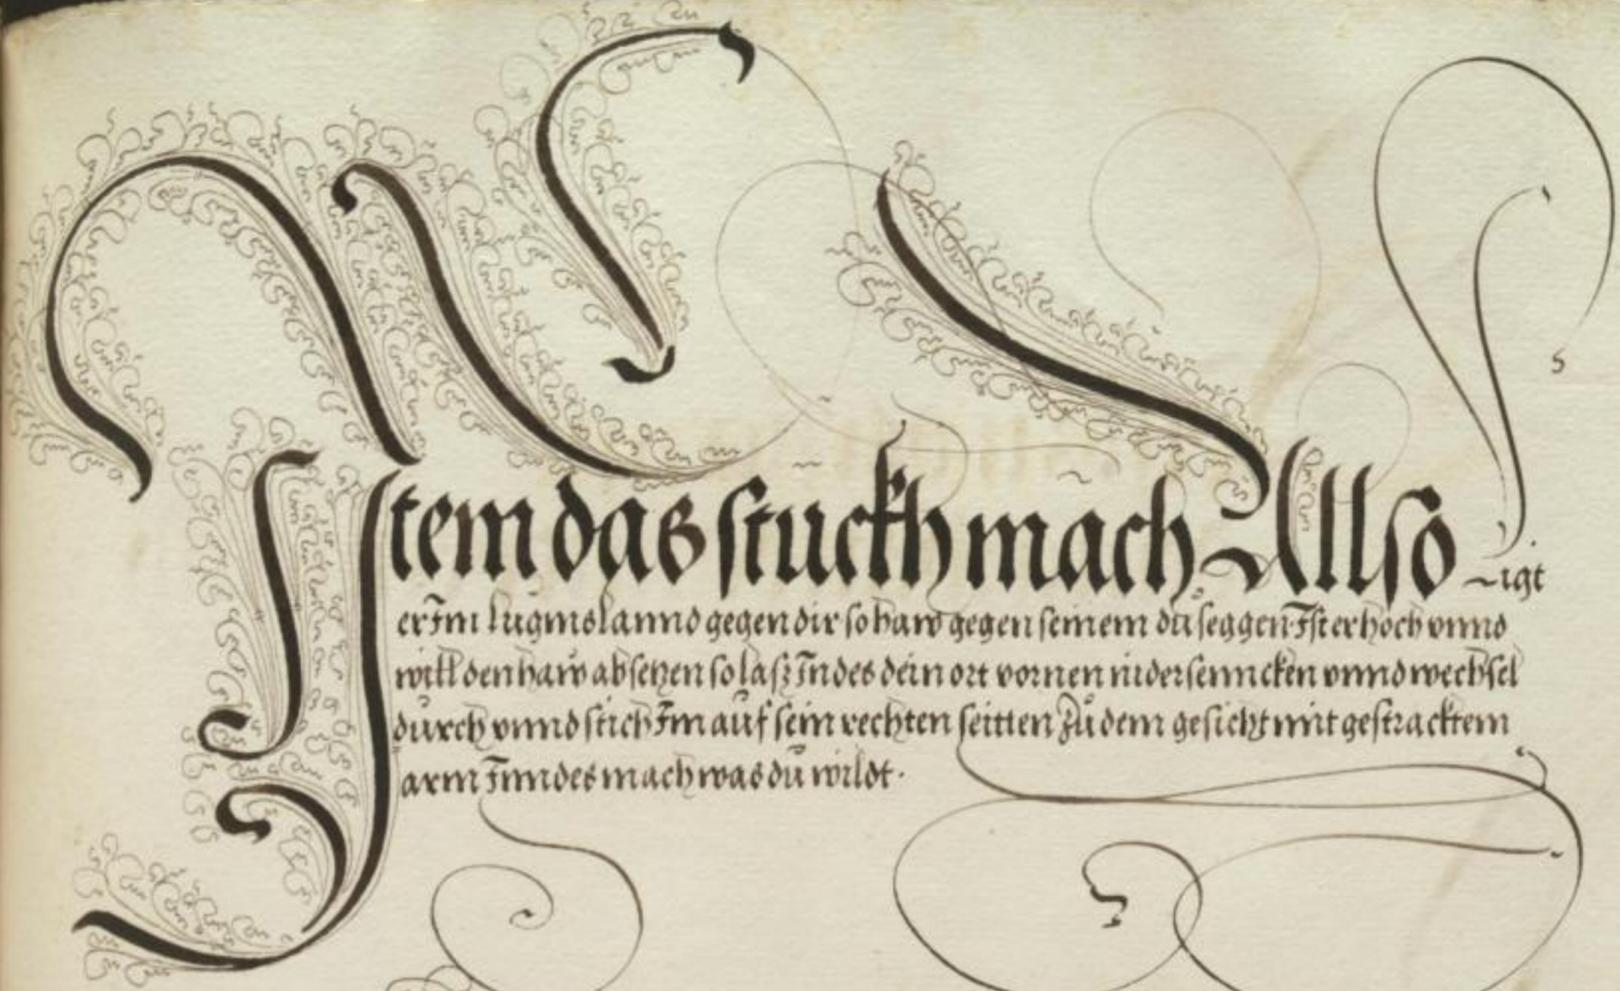 Item das stuckh mach Allso ligt
er Im lŭginslannd gegen dir so haw gegen seinem dŭseggen Ist er hoch vnnd
will den haw absetzen so lasz Indes dein ort vornen nidersenncken vnnd wechsel
dŭrch vnnd stich Im auf sein rechten seitten Zŭ dem gesicht mit gestracktem
arm Inndes mach was dŭ wildt.